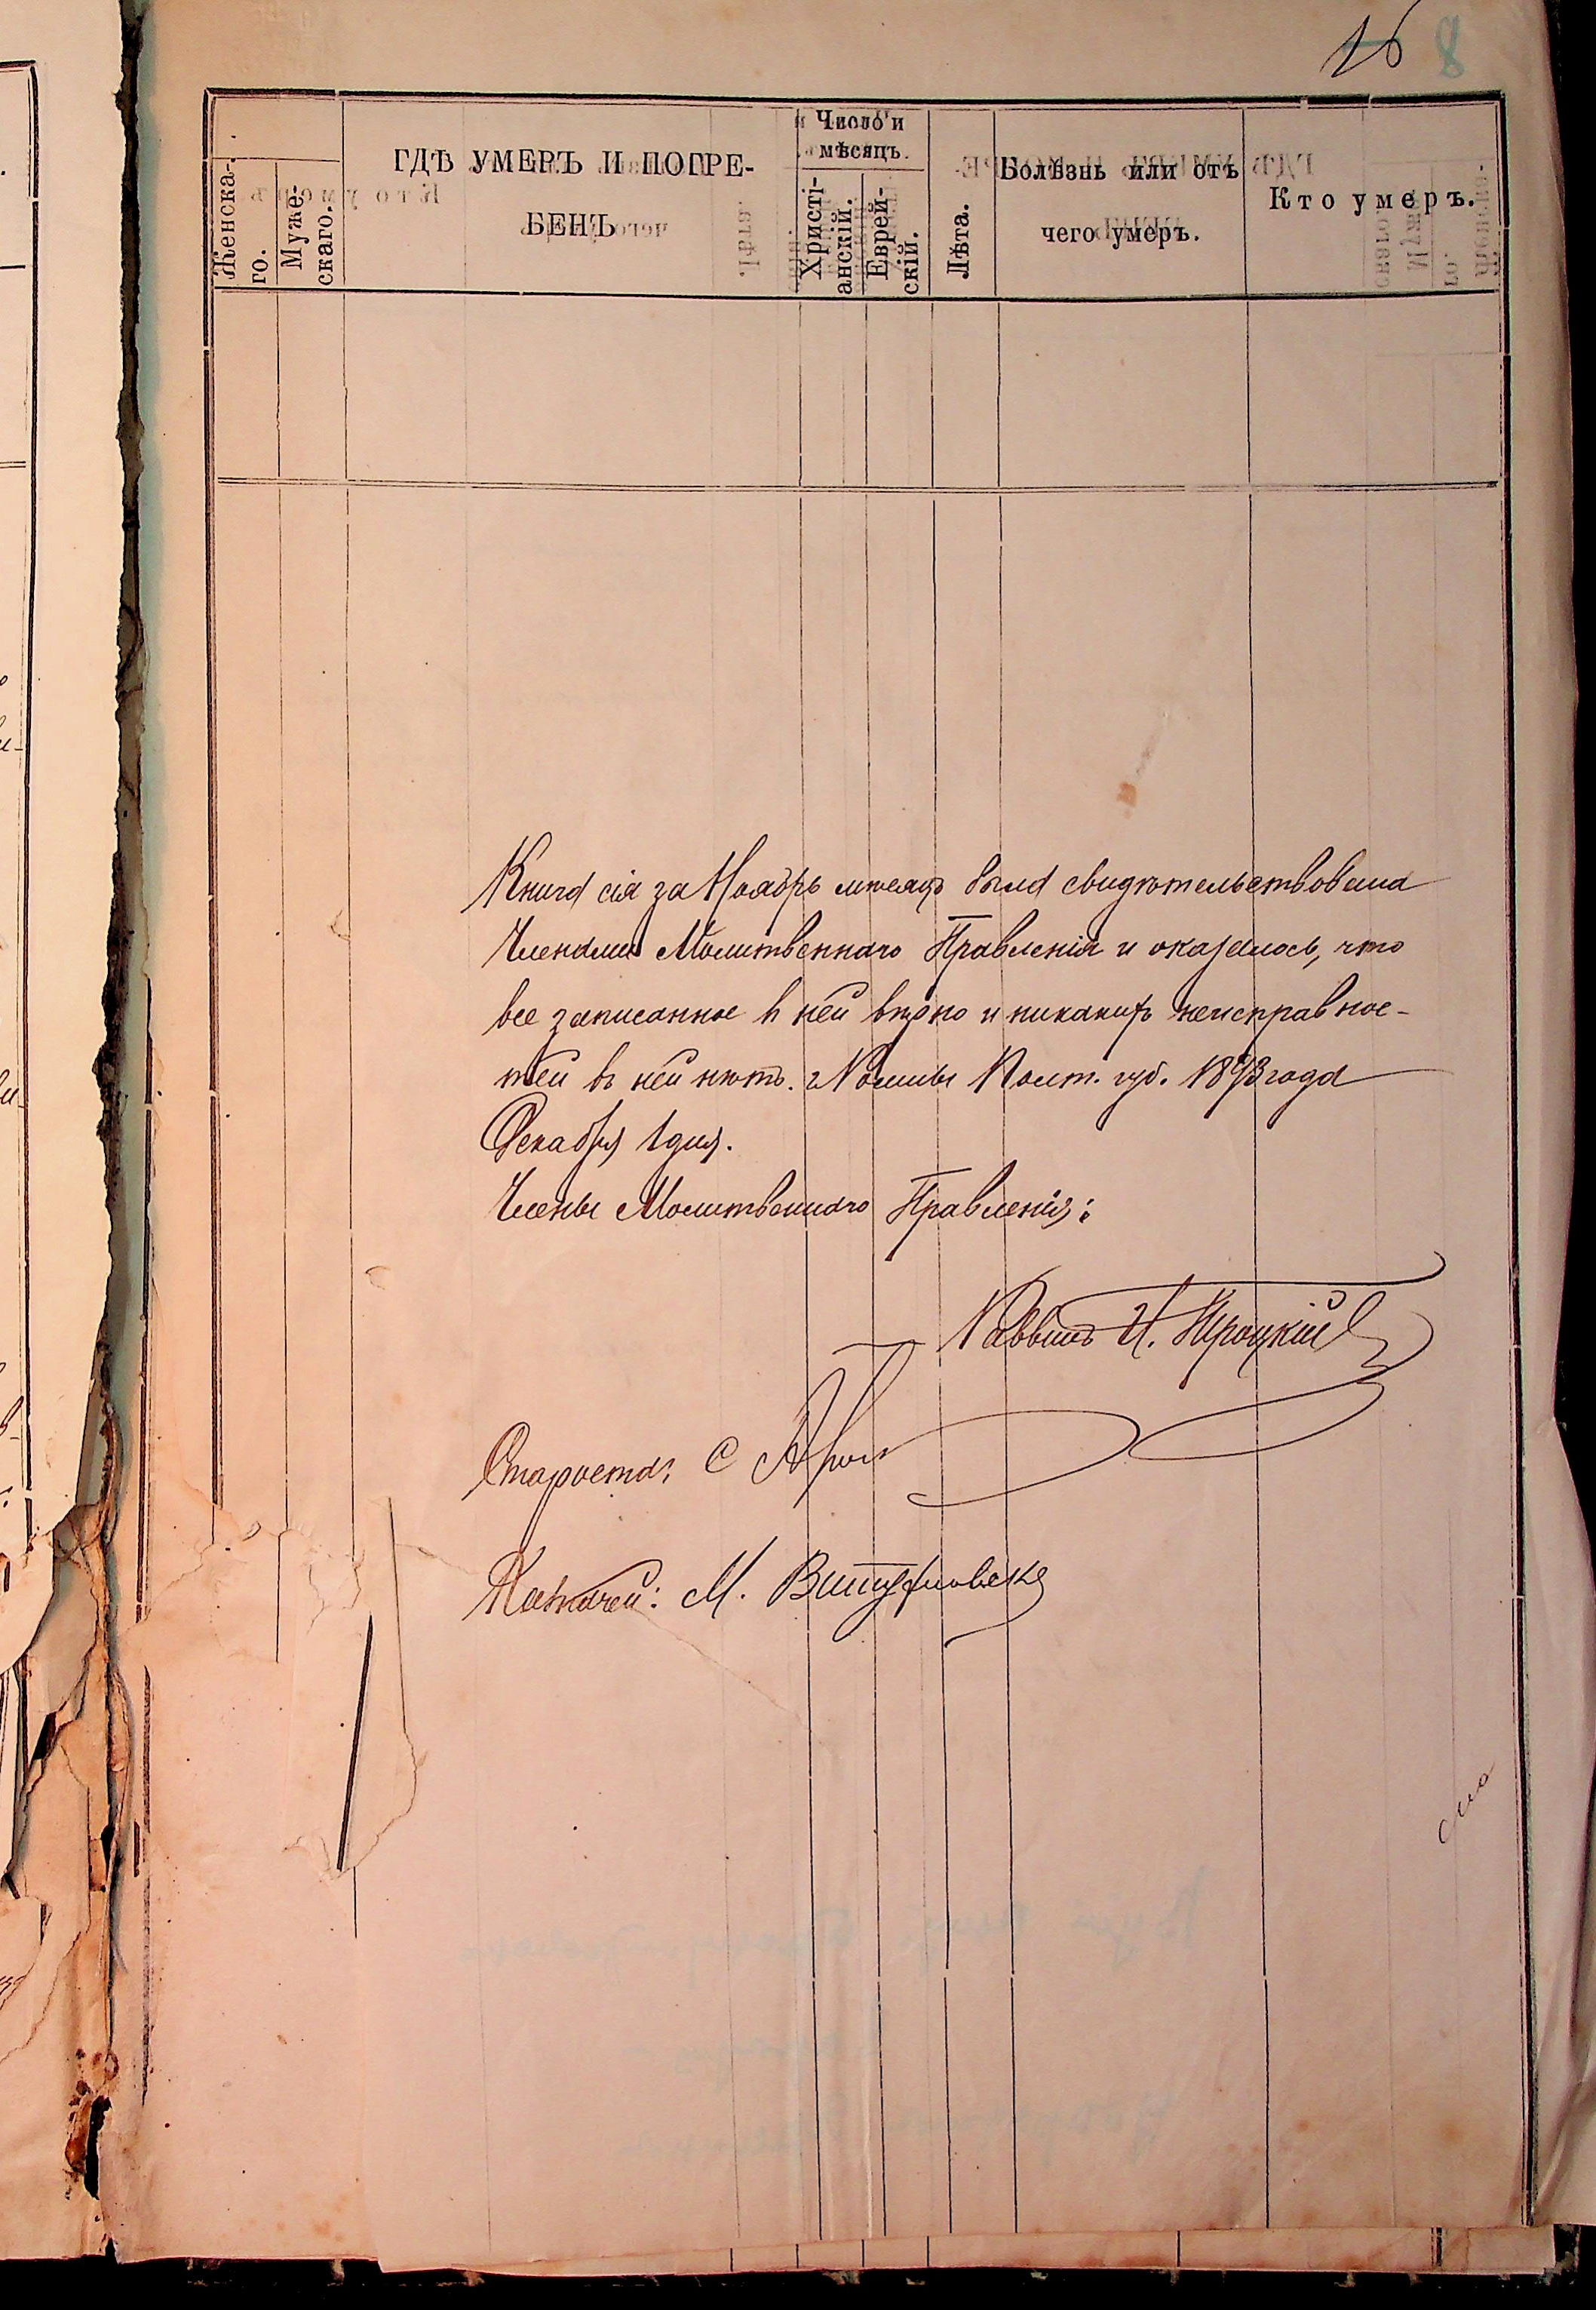 16 8
Женска-
го.
Муже-
скаго.
ГДѢ УМЕРЪ И ПОГРЕ-
БЕНЪ
Число и
мѣсяцъ.
Христі-
анскій.
Еврей-
скій.
Лѣта.
Болѣзнь или отъ
чего умеръ.
Кто умеръ.
Книга сія за Ноябрь мѣсяцъ была свидѣтельствована
Членами Молитвеннаго Правленія и оказалось, что
все записанное в ней вѣрно и никакихъ неисправнос-
тей въ ней нѣтъ. г. Ромны Полт. губ. 1893 года
Декабря 1 дня.
Члены Молитвеннаго Правленія:
Раввинъ И. Троцкій
Староста: С
Казначей: М.